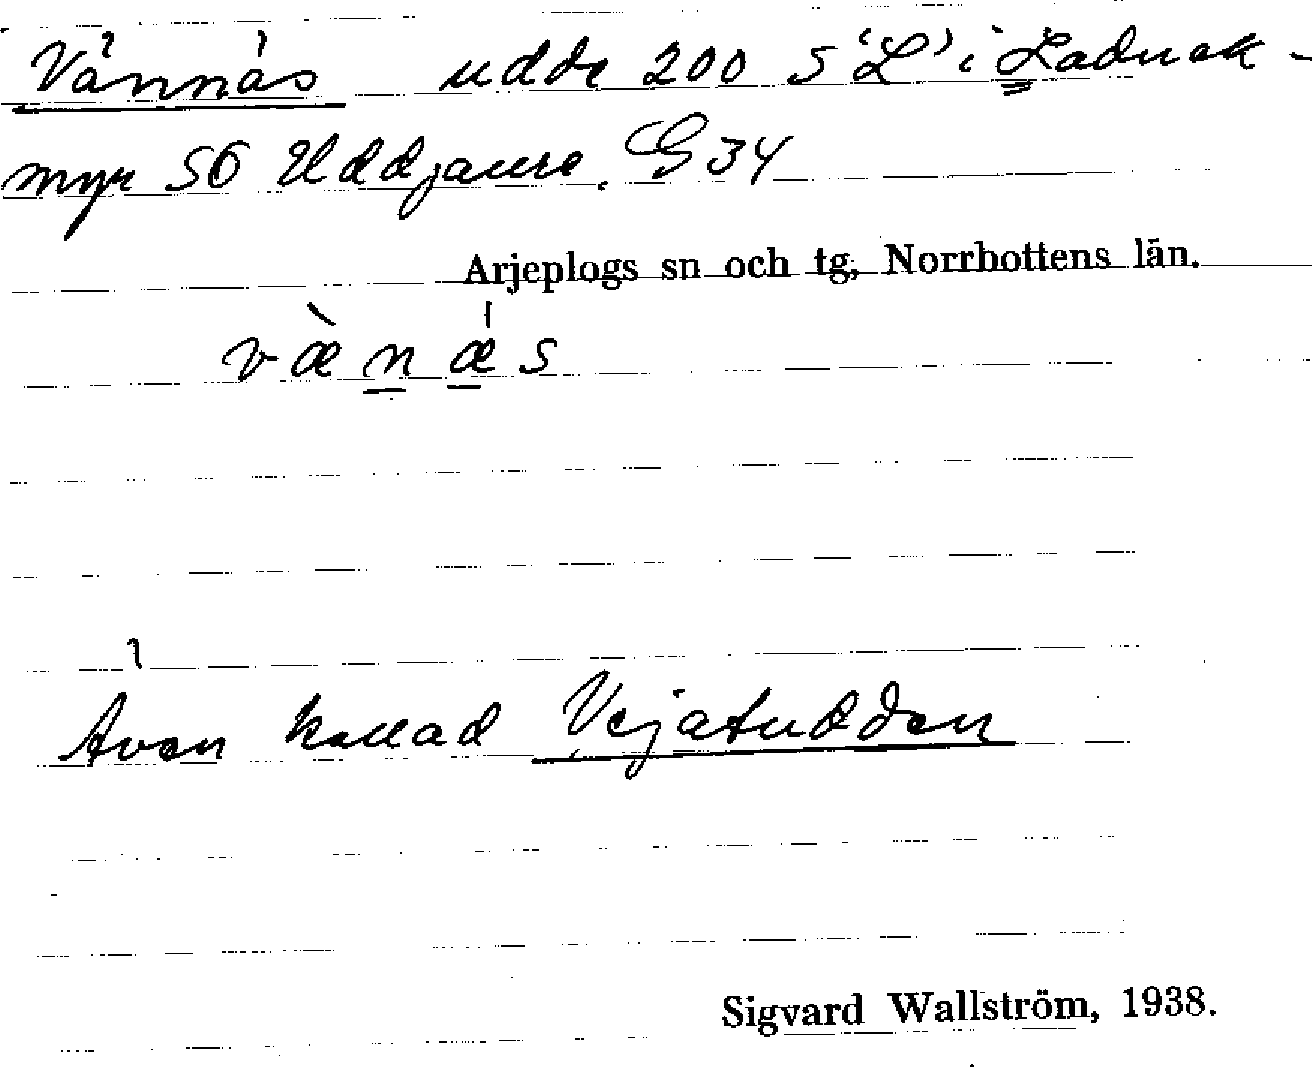 Vännäs udde 200 S 'L' i Laduak-
myr SO Uddjaure. G 34
Arjeplogs sn och tg, Norrbottens län.
væ̀nǽs
Även kallad Vejatudden
Sigvard Wallström, 1938.